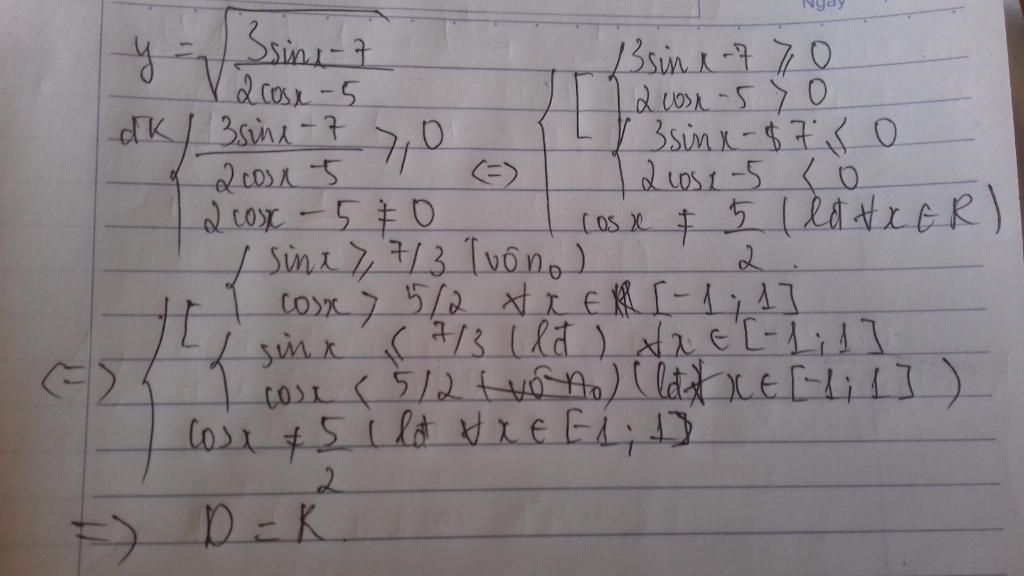 Ngày
y = √((3sinx - 7)/(2cosx - 5))
đk { (3sinx - 7)/(2cosx - 5) ⩾ 0
2cosx - 5 ≠ 0
<=> { [ { 3sinx - 7 ⩾ 0
2cosx - 5 > 0
{ 3sinx - 7 ⩽ 0
2cosx - 5 < 0
cosx ≠ 5/2 (lđ ∀x ∈ R)
<=> { [ { sinx ⩾ 7/3 (vô no)
cosx > 5/2 ∀x ∈ [-1; 1]
{ sinx ⩽ 7/3 (lđ) ∀x ∈ [-1; 1]
cosx < 5/2 (vô no) (lđ ∀x ∈ [-1; 1])
cosx ≠ 5/2 (lđ ∀x ∈ [-1; 1]
=> D = R.